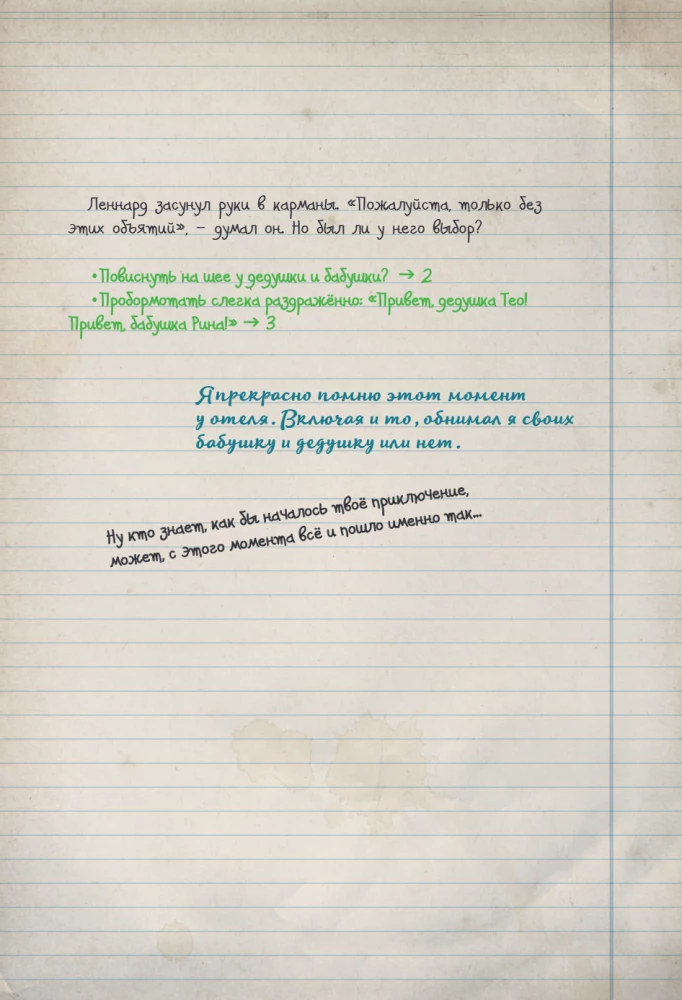 Леннард засунул руки в карманы. «Пожалуйста, только без
этих объятий», – думал он. Но был ли у него выбор?
•Повиснуть на шее у дедушки и бабушки? → 2
•Пробормотать слегка раздражённо: «Привет, дедушка Тео!
Привет, бабушка Рина!» → 3
Я прекрасно помню этот момент
у отеля. Включая и то, обнимал я своих
бабушку и дедушку или нет.
Ну кто знает, как бы началось твоё приключение,
может, с этого момента всё и пошло именно так...